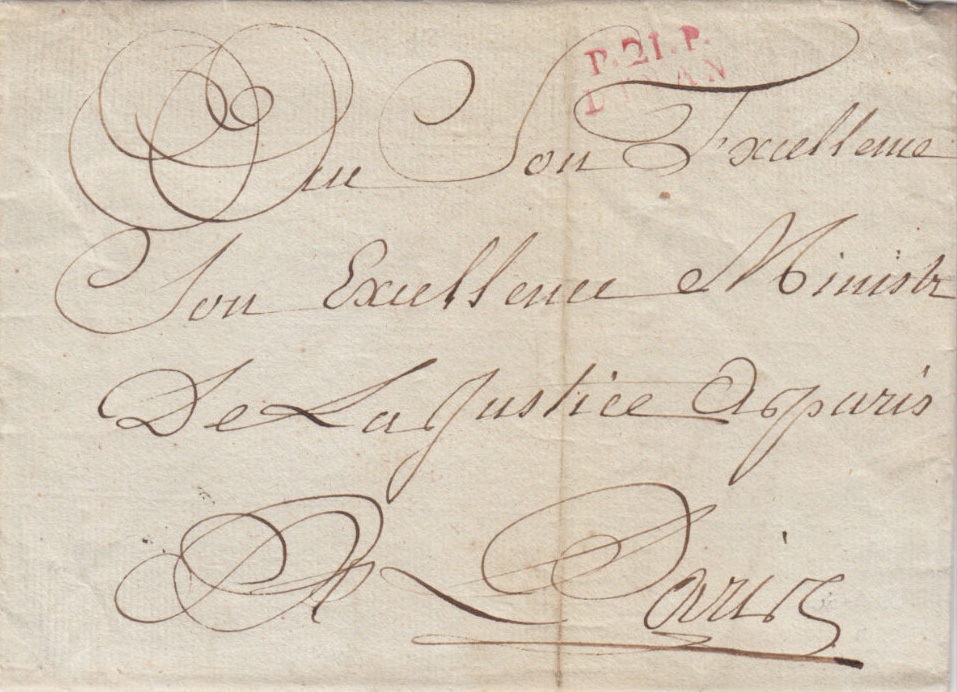 P.21.P.
DINAN
A Son Excellence
Son Excellence Ministr
De La Justice A paris
A Paris